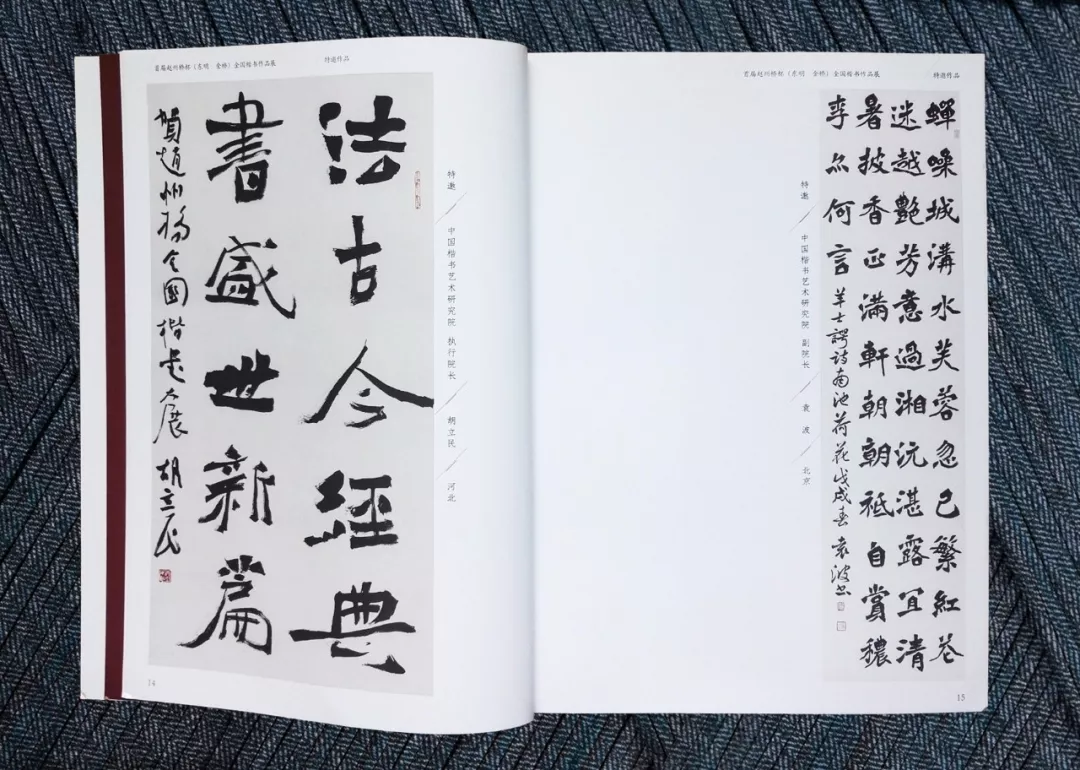 首届赵州桥杯（东明 金桥）全国楷书作品展 特邀作品
法古今經典
書盛世新篇
賀趙州橋全國楷书大展 胡立民
特邀
中国楷书艺术研究院 执行院长
胡立民
河北
14
首届赵州桥杯（东明 金桥）全国楷书作品展 特邀作品
蟬噪城溝水芙蓉忽已繁紅芲
迷越艷芳意過湘沅湛露宜清
暑披香正滿軒朝朝祗自賞穠
李尒何言 羊士諤诗南池荷花 戊戌春 袁波书
特邀
中国楷书艺术研究院 副院长
袁波
北京
15